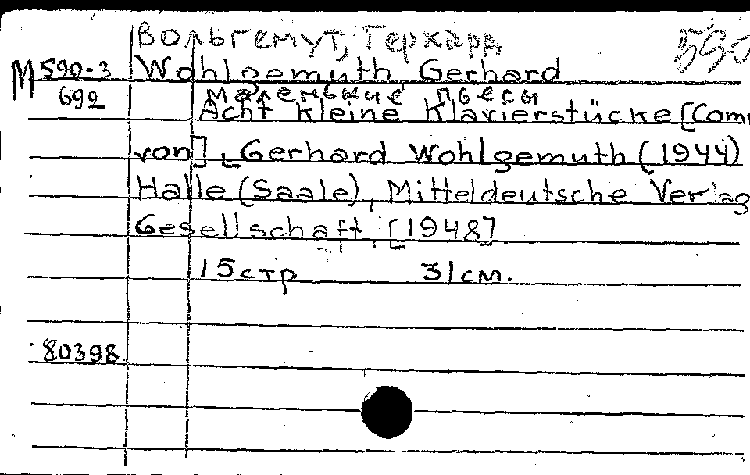 Вольгемут, Герхард 590
М 590-3 Wohlgemuth, Gerhard
692 маленькие пьесы
Acht kleine Klavierstücke [Com
von], Gerhard Wohlgemuth (1944)
Halle (Saale), Mitteldeutsche Verlag
Gesellschaft, [1948]
15 стр 31 см.
80398